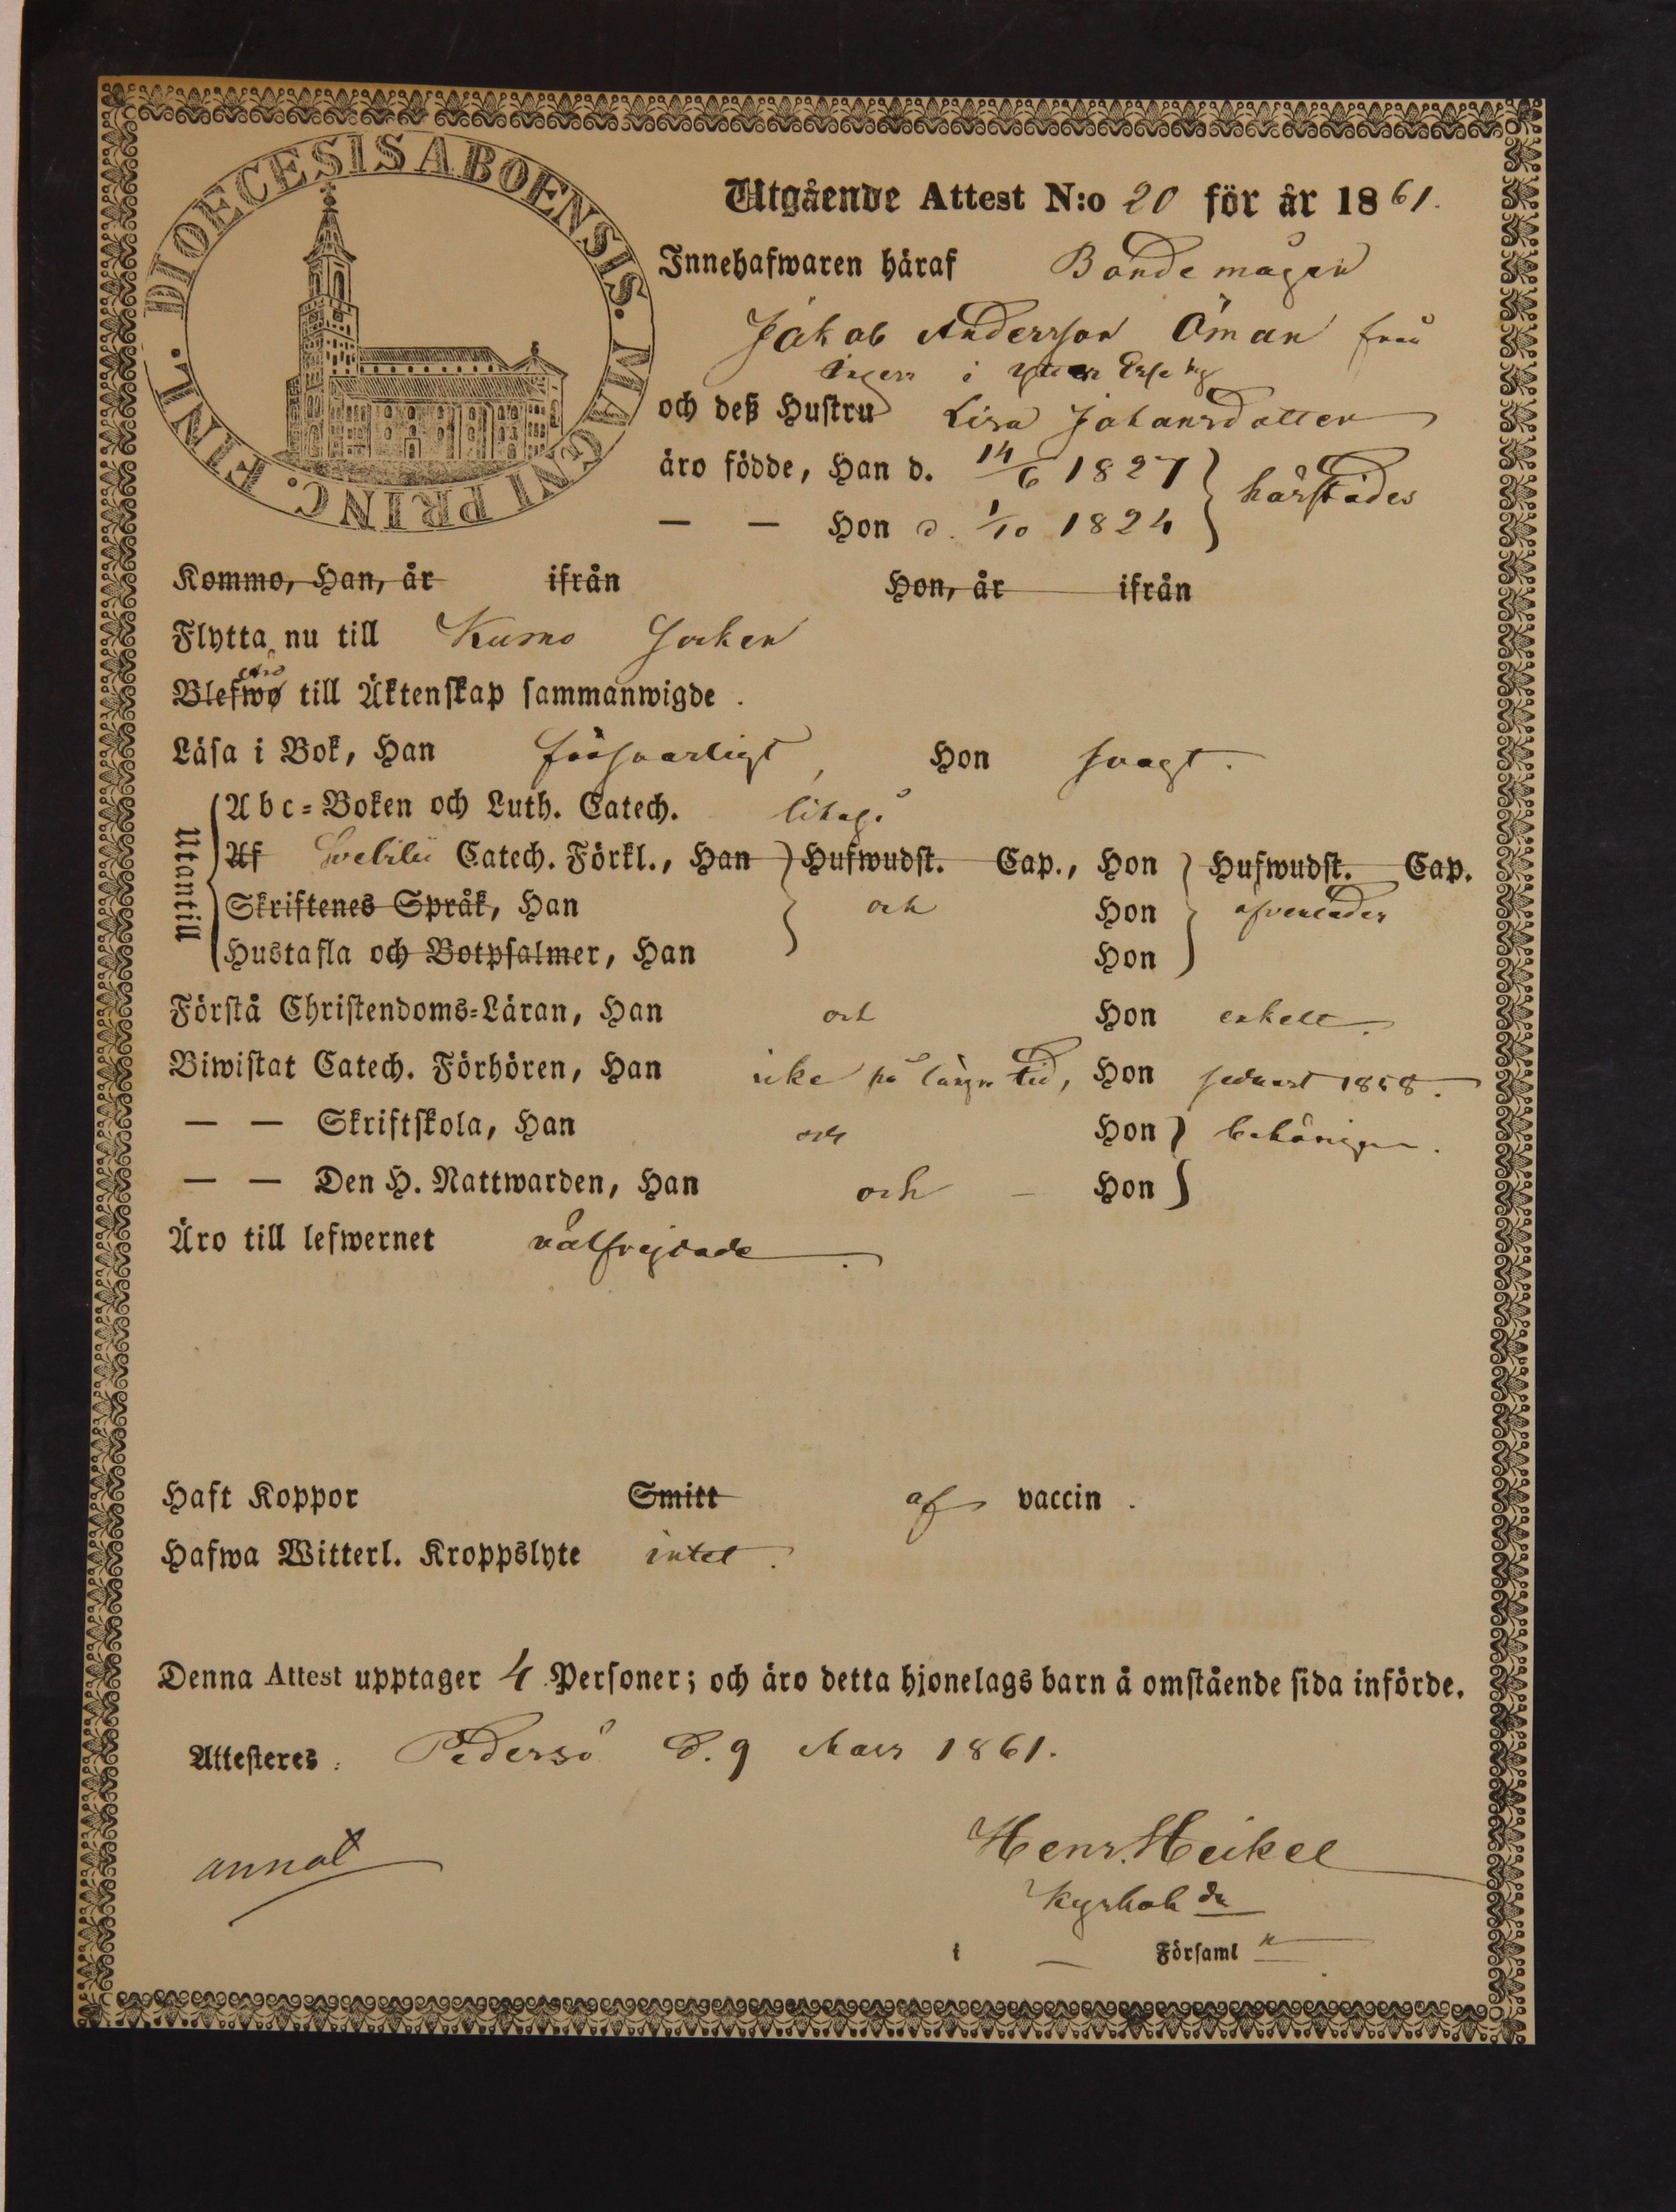 DIOECESIS ABOENSIS. MAGNI PRINC. FINL.
Utgående Attest N:o 20 för år 1861.
Innehafwaren häraf Bondemågen
Jakob Andersson Öman från
i Ytter Esse by
och deß Hustru Lisa Johansdotter
äro födde, Han d. 14/6 1827
härstädes
— — Hon d. 1/10 1824
Kommo, Han, år ifrån Hon, år ifrån
Flytta nu till Kumo Socken
äro
Blefwo till Äktenskap sammanwigde.
Läsa i Bok, Han försvarligt, Hon svagt.
Utantill
Abc-Boken och Luth. Catech. likaså
Af Svebilii Catech. Förkl., Han Hufwudst. Cap., Hon Hufwudst. Cap.
Skriftenes Språk, Han och Hon
Hustafla och Botpsalmer, Han Hon
Förstå Christendoms-Läran, Han och Hon enkelt.
Biwistat Catech. Förhören, Han icke på längre tid, Hon senast 1858.
— — Skriftskola, Han och Hon behörigen.
— — Den H. Nattwarden, Han och — Hon
Äro till lefwernet välfrejdade.
Haft Koppor Smitt af vaccin.
Hafwa Witterl. Kroppslyte intet.
Denna Attest upptager 4 Personer; och äro detta hjonelags barn å omstående sida införde.
Attesteres: Pedersö d. 9 Mars 1861.
Henr. Heikel
annot
Kyrkoh de
i — Församl n